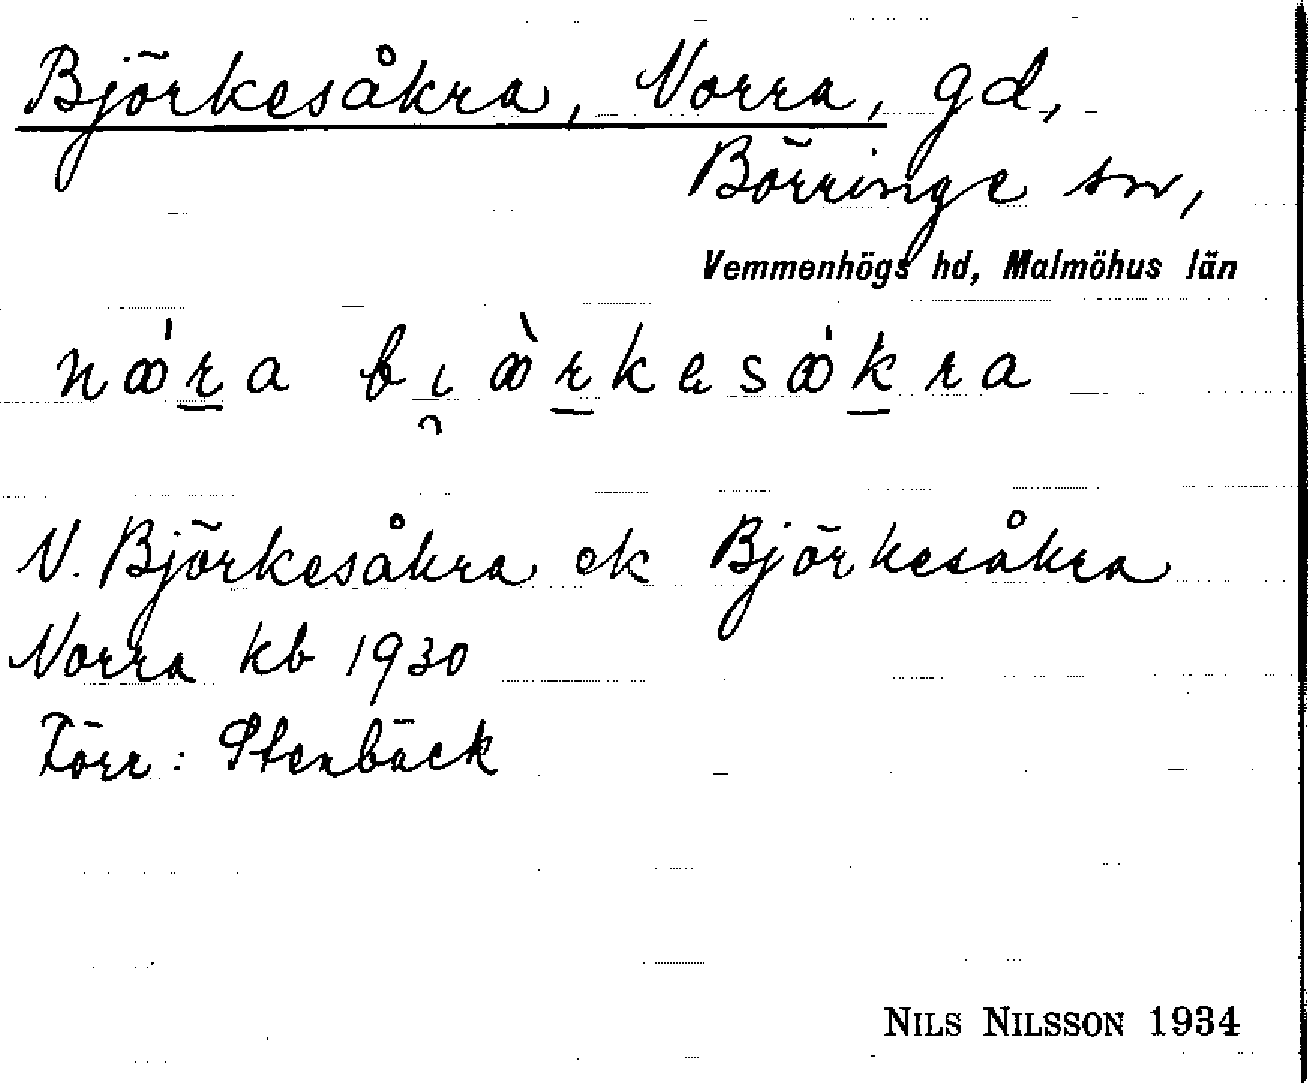 Björkesåkra, Norra, gd,
Börringe sn,
Vemmenhögs hd, Malmöhus län
nǿra bi̯ œ̀rkesǿkra
N. Björkesåkra ek Björkesåkra
Norra kb 1930
Förr: Stenbäck
NILS NILSSON 1934